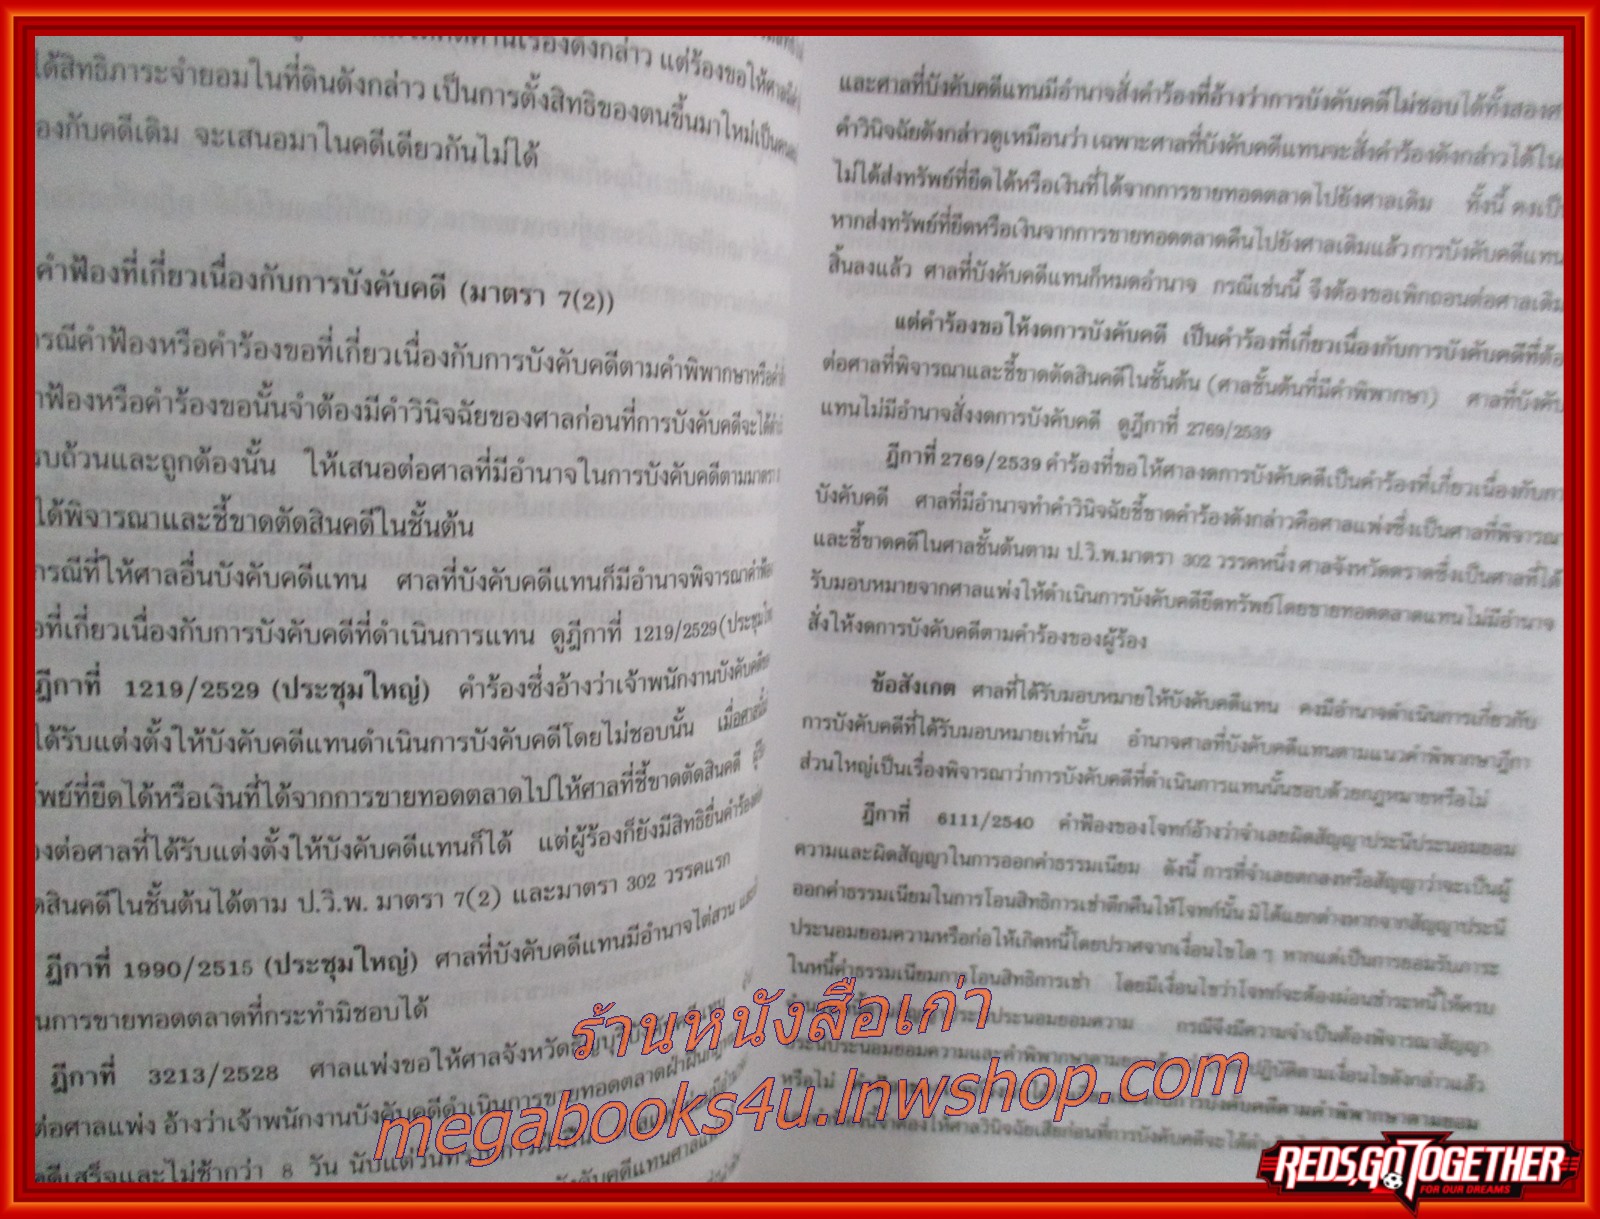 ได้สิทธิภาระจำยอมในที่ดินดังกล่าว เป็นการตั้งสิทธิของตนขึ้นมาใหม่เป็นคน
องกับคดีเดิม จะเสนอมาในคดีเดียวกันไม่ได้
คำฟ้องที่เกี่ยวเนื่องกับการบังคับคดี (มาตรา 7(2))
กรณีคำฟ้องหรือคำร้องขอที่เกี่ยวเนื่องกับการบังคับคดีตามคำพิพากษาหรือคำ
าฟ้องหรือคำร้องขอนั้นจำต้องมีคำวินิจฉัยของศาลก่อนที่การบังคับคดีจะได้ดำ
รบถ้วนและถูกต้องนั้น ให้เสนอต่อศาลที่มีอำนาจในการบังคับคดีตามมาตรา
ได้พิจารณาและชี้ขาดตัดสินคดีในชั้นต้น
กรณีที่ให้ศาลอื่นบังคับคดีแทน ศาลที่บังคับคดีแทนก็มีอำนาจพิจารณาคำฟ้อง
อที่เกี่ยวเนื่องกับการบังคับคดีที่ดำเนินการแทน ดูฎีกาที่ 1219/2529(ประชุมใ
ฎีกาที่ 1219/2529 (ประชุมใหญ่) คำร้องซึ่งอ้างว่าเจ้าพนักงานบังคับคดี
ได้รับแต่งตั้งให้บังคับคดีแทนดำเนินการบังคับคดีโดยไม่ชอบนั้น เมื่อศาล
รัพย์ที่ยึดได้หรือเงินที่ได้จากการขายทอดตลาดไปให้ศาลที่ชี้ขาดตัดสินคดี
องต่อศาลที่ได้รับแต่งตั้งให้บังคับคดีแทนก็ได้ แต่ผู้ร้องก็ยังมีสิทธิยื่นคำร้อง
ดสินคดีในชั้นต้นได้ตาม ป.วิ.พ. มาตรา 7(2) และมาตรา 302 วรรคแรก
ฎีกาที่ 1990/2515 (ประชุมใหญ่) ศาลที่บังคับคดีแทนมีอำนาจไต่สวน
นการขายทอดตลาดที่กระทำมิชอบได้
ฎีกาที่ 3213/2528 ศาลแพ่งขอให้ศาลจังหวัด
ต่อศาลแพ่ง อ้างว่าเจ้าพนักงานบังคับคดีดำเนินการขายทอดตลาดฝ่าฝืน
คดีเสร็จและไม่ช้ากว่า 8 วัน
และศาลที่บังคับคดีแทนมีอำนาจสั่งคำร้องที่อ้างว่าการบังคับคดีไม่ชอบได้ทั้งสองศ
คำวินิจฉัยดังกล่าวดูเหมือนว่า เฉพาะศาลที่บังคับคดีแทนจะสั่งคำร้องดังกล่าวได้ใน
ไม่ได้ส่งทรัพย์ที่ยึดได้หรือเงินที่ได้จากการขายทอดตลาดไปยังศาลเดิม ทั้งนี้ คงเป็
หากส่งทรัพย์ที่ยึดหรือเงินจากการขายทอดตลาดคืนไปยังศาลเดิมแล้ว การบังคับคดีแทน
สิ้นลงแล้ว ศาลที่บังคับคดีแทนก็หมดอำนาจ กรณีเช่นนี้ จึงต้องขอเพิกถอนต่อศาลเดิม
แต่คำร้องขอให้งดการบังคับคดี เป็นคำร้องที่เกี่ยวเนื่องกับการบังคับคดีที่ต้อ
ต่อศาลที่พิจารณาและชี้ขาดตัดสินคดีในชั้นต้น (ศาลชั้นต้นที่มีคำพิพากษา) ศาลที่บังคับ
แทนไม่มีอำนาจสั่งงดการบังคับคดี ดูฎีกาที่ 2769/2539
ฎีกาที่ 2769/2539 คำร้องที่ขอให้ศาลงดการบังคับคดีเป็นคำร้องที่เกี่ยวเนื่องกับกา
บังคับคดี ศาลที่มีอำนาจทำคำวินิจฉัยชี้ขาดคำร้องดังกล่าวคือศาลแพ่งซึ่งเป็นศาลที่พิจารณา
และชี้ขาดคดีในศาลชั้นต้นตาม ป.วิ.พ.มาตรา 302 วรรคหนึ่ง ศาลจังหวัดตราดซึ่งเป็นศาลที่ได้
รับมอบหมายจากศาลแพ่งให้ดำเนินการบังคับคดียึดทรัพย์โดยขายทอดตลาดแทนไม่มีอำนาจ
สั่งให้งดการบังคับคดีตามคำร้องของผู้ร้อง
ข้อสังเกต ศาลที่ได้รับมอบหมายให้บังคับคดีแทน คงมีอำนาจดำเนินการเกี่ยวกับ
การบังคับคดีที่ได้รับมอบหมายเท่านั้น อำนาจศาลที่บังคับคดีแทนตามแนวคำพิพากษาฎีกา
ส่วนใหญ่เป็นเรื่องพิจารณาว่าการบังคับคดีที่ดำเนินการแทนนั้นชอบด้วยกฎหมายหรือไม่
ฎีกาที่ 6111/2540 คำฟ้องของโจทก์อ้างว่าจำเลยผิดสัญญาประนีประนอมยอม
ความและผิดสัญญาในการออกค่าธรรมเนียม ดังนี้ การที่จำเลยตกลงหรือสัญญาว่าจะเป็นผู้
ออกค่าธรรมเนียมในการโอนสิทธิการเช่าตึกคืนให้โจทก์นั้น มิได้แยกต่างหากจากสัญญาประนี
ประนอมยอมความหรือก่อให้เกิดหนี้โดยปราศจากเงื่อนไขใด ๆ หากแต่เป็นการยอมรับภาระ
ในหนี้ค่าธรรมเนียมการโอนสิทธิการเช่า โดยมีเงื่อนไขว่าโจทก์จะต้องผ่อนชำระหนี้ให้ครบ
ประนีประนอมยอมความ กรณีจึงมีความจำเป็นต้องพิจารณาสัญญา
ประนีประนอมยอมความและคำพิพากษาตามยอม ปฏิบัติตามเงื่อนไขดังกล่าวแล้ว
หรือไม่ การบังคับคดีตามคำพิพากษาตามยอม
ให้ศาลวินิจฉัยเสียก่อนที่การบังคับคดีจะได้
ร้านหนังสือเก่า
megabooks4u.lnwshop.com
REDS,GO TOGETHER
FOR OUR DREAMS